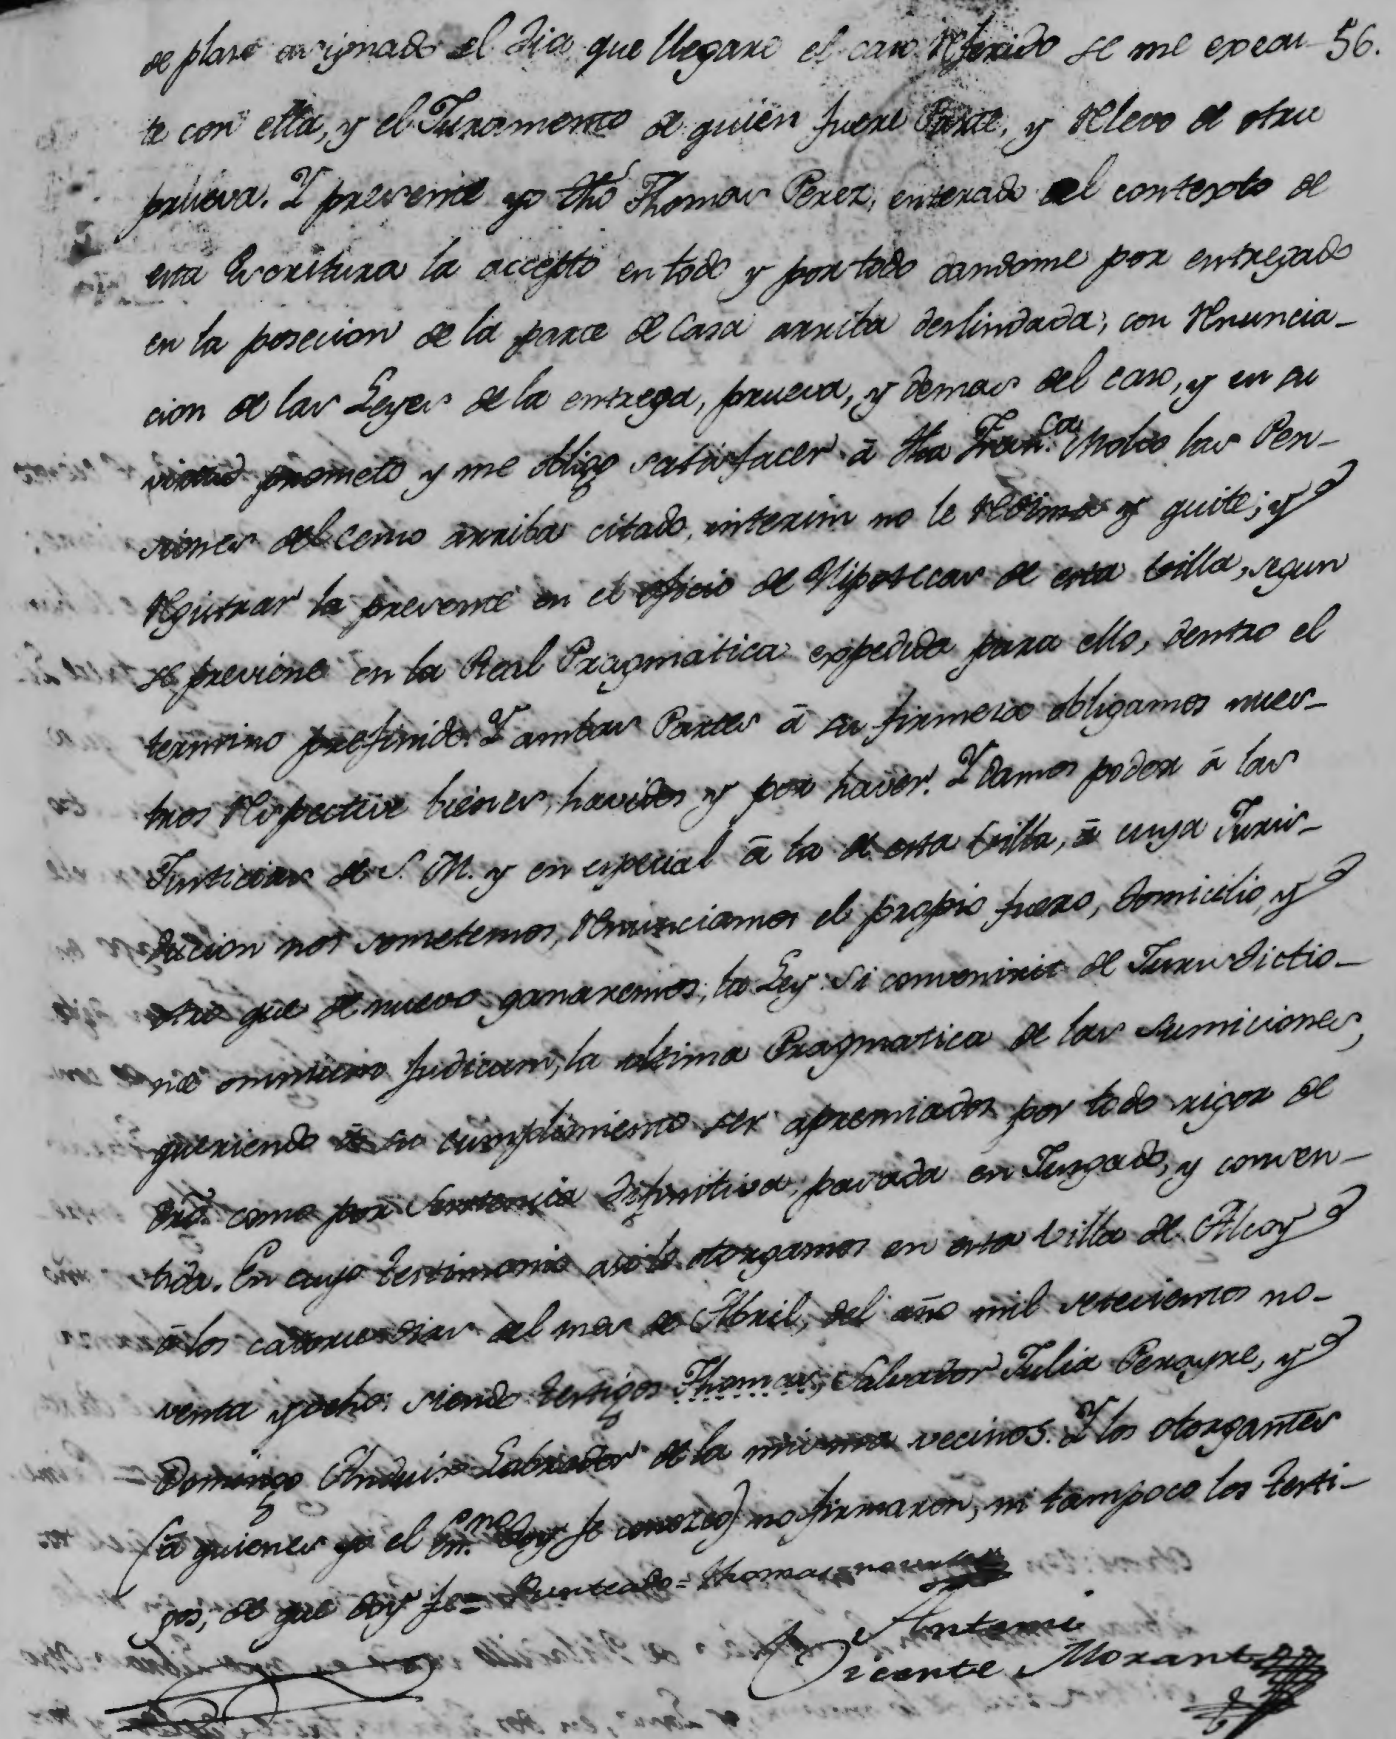 de plazo asignado el dia que llegare el caso referido se me execu- 56.
te con esta, y el Juramento de quien fuere Parte, y relievo de otra
prueva. Y presente yo dho Thomas Perez, enterado del contexto de
esta Escritura la accepto en todo y por todo dandome por entregado
en la posecion de la parte de Casa arriba deslindada; con renuncia-
cion de las Leyes de la entrega, prueva, y demas del caso, y en su
virtud prometo y me obligo satisfacer â dha Fran.ca Molto las Pen-
siones del censo arriba citado, interin no le redima y quite; y
registrar la presente en el oficio de Hipotecas de esta Villa, segun
se previene en la Real Pragmatica expedida para ello, dentro el
termino prefinido. Y ambas Partes â su firmeza obligamos nues-
tros respective bienes, havidos y por haver. Y damos poder â las
Justicias de S. M. y en especial â la de esta Villa, â cuya Juris-
diccion nos sometemos, renunciamos el propio fuero, domicilio, y
otro que de nuevo ganaremos, la Ley Si convenirit de Jurisdictio-
ne omnium Judicum, la ultima Pragmatica de las Sumiciones,
queriendo â su cumplimiento ser apremiados por todo rigor de
dro. como por Sentencia difinitiva, pasada en Juzgado, y consen-
tida. En cuyo testimonio asi lo otorgamos en esta Villa de Alcoy
â los catorce dias del mes de Abril, del año mil setecientos no-
venta y ocho: siendo testigos Thomas, Salvador Julia Perayre, y
Domingo Anduix Labrador de la misma vecinos. Y los otorgantes
(â quienes yo el Es.no doy fe conozco) no firmaron, ni tampoco los testi-
gos, de que doy fe= Punteado= Thomas= no vale
Antemi
Vicente Morant